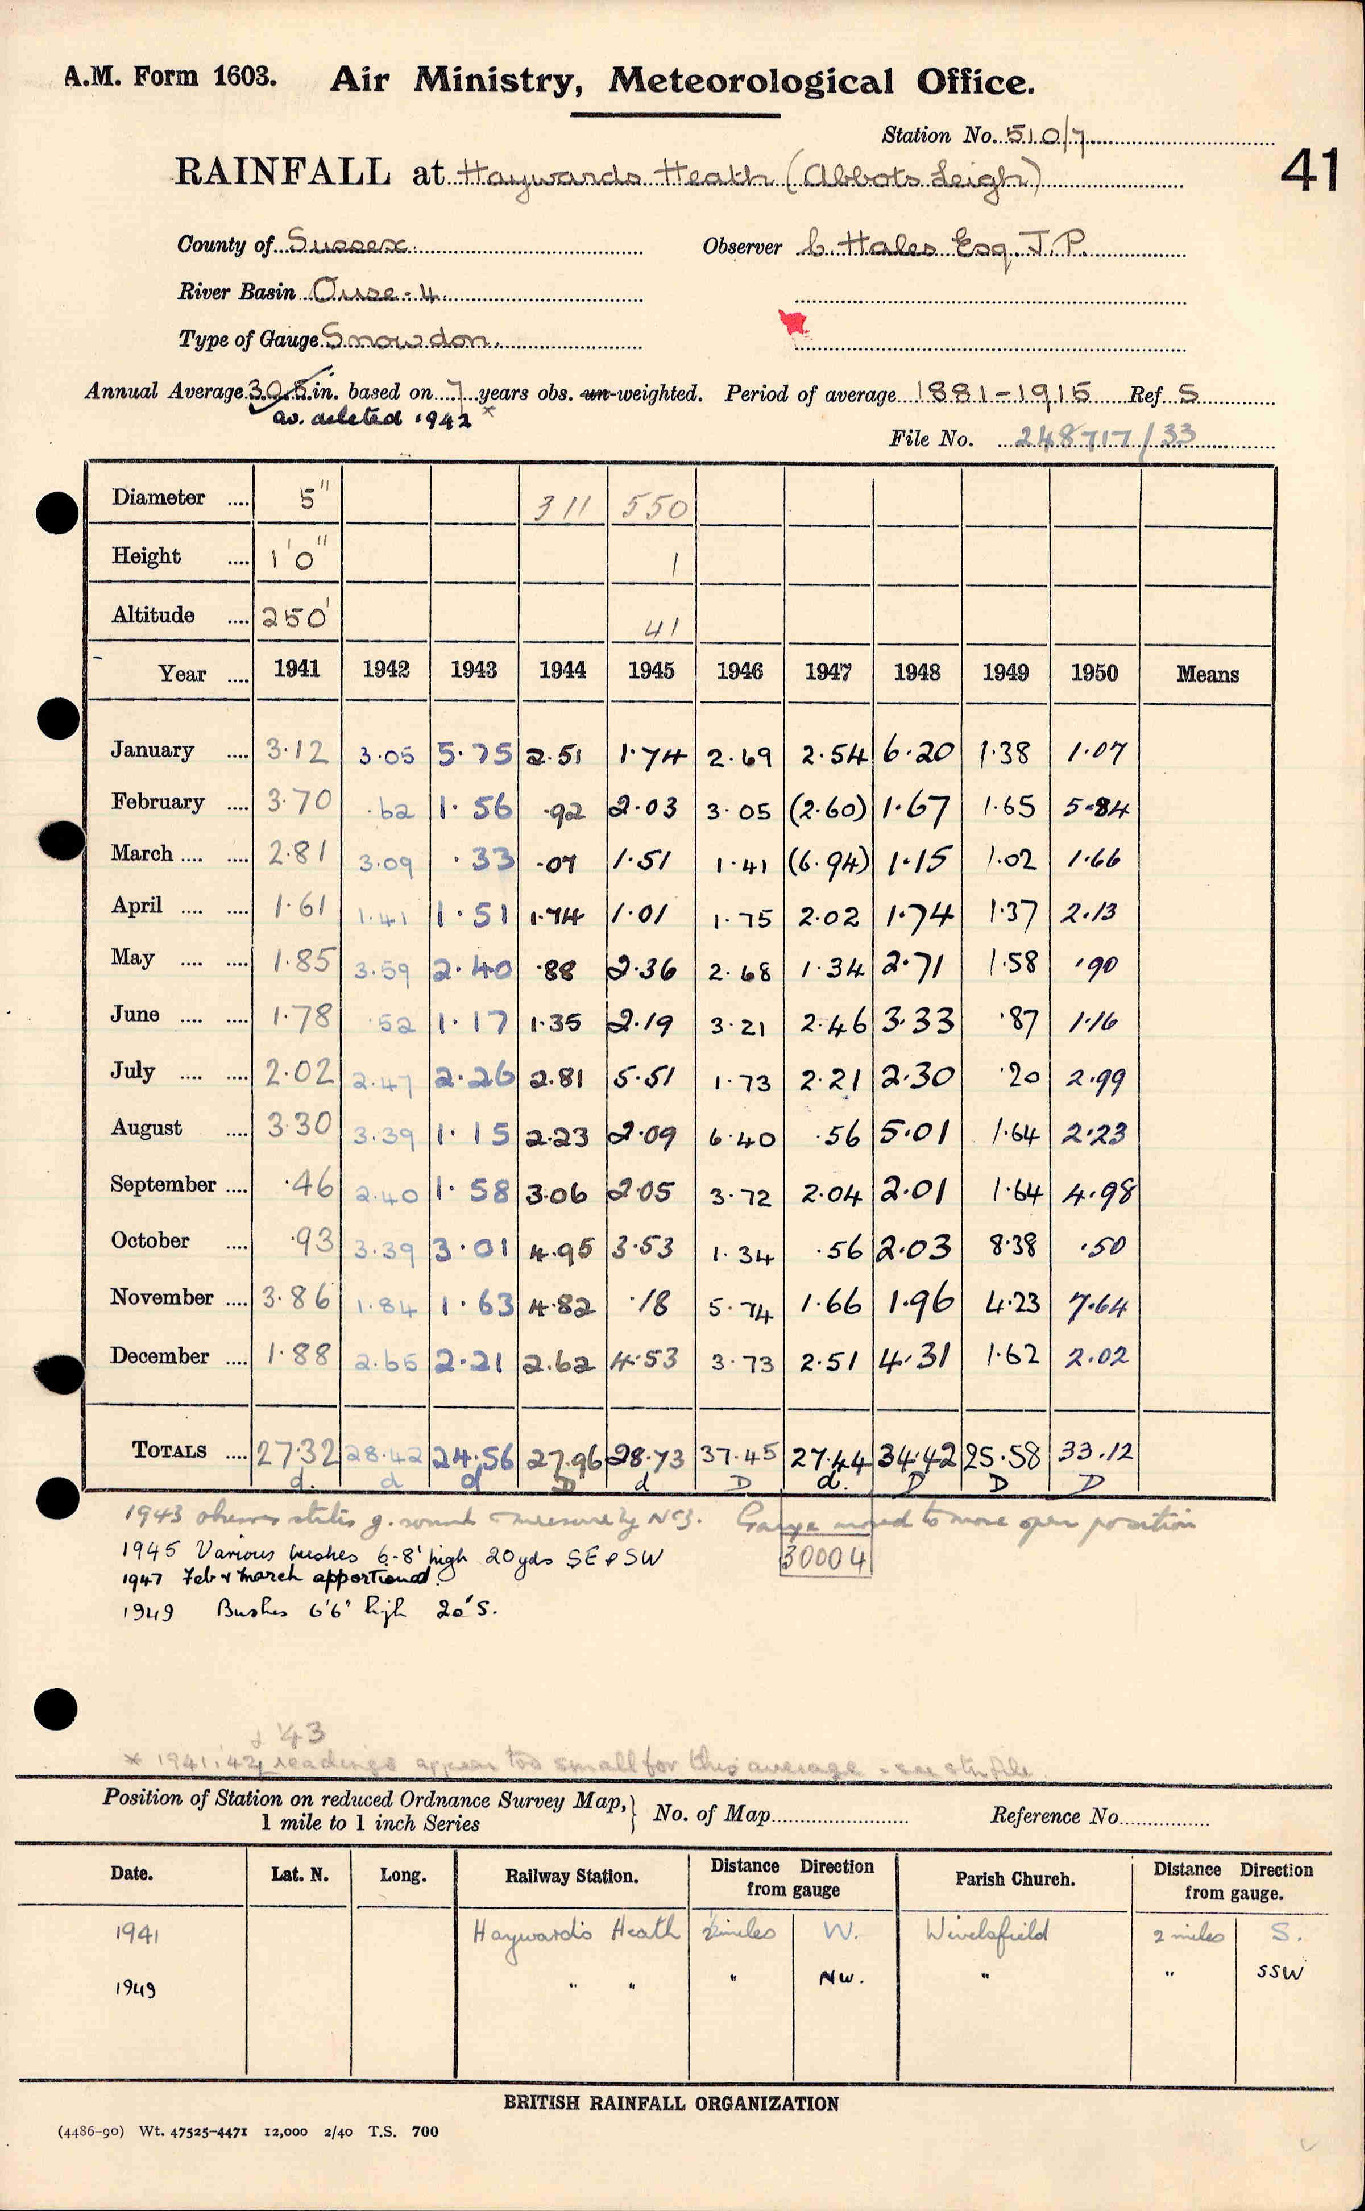 A.M. Form 1603. Air Ministry, Meteorological Office.
Station No. 510/7
41
RAINFALL at Haywards Heath (Abbots Leigh)
County of Sussex Observer C. Hales Esq. J.P.
River Basin Ouse - 4
Type of Gauge Snowdon.
Annual Average 30.5 in. based on 7 years obs. un-weighted. Period of average 1881-1915 Ref S
av. deleted 1942 *
File No. 248717/33
Diameter .... 5" 311 550
Height .... 1'0" 1
Altitude .... 250' 41
Year .... 1941 1942 1943 1944 1945 1946 1947 1948 1949 1950 Means
January .... 3.12 3.05 5.75 2.51 1.74 2.69 2.54 6.20 1.38 1.07
February .... 3.70 .62 1.56 .92 2.03 3.05 (2.60) 1.67 1.65 5.84
March .... .... 2.81 3.09 .33 .07 1.51 1.41 (6.94) 1.15 1.02 1.66
April .... .... 1.61 1.41 1.51 1.74 1.01 1.75 2.02 1.74 1.37 2.13
May .... .... 1.85 3.59 2.40 .88 2.36 2.68 1.34 2.71 1.58 .90
June .... .... 1.78 .52 1.17 1.35 2.19 3.21 2.46 3.33 .87 1.16
July .... .... 2.02 2.47 2.26 2.81 5.51 1.73 2.21 2.30 .20 2.99
August .... 3.30 3.39 1.15 2.23 2.09 6.40 .56 5.01 1.64 2.23
September .... .46 2.40 1.58 3.06 2.05 3.72 2.04 2.01 1.64 4.98
October .... .93 3.39 3.01 4.95 3.53 1.34 .56 2.03 8.38 .50
November .... 3.86 1.84 1.63 4.82 .18 5.74 1.66 1.96 4.23 7.64
December .... 1.88 2.65 2.21 2.62 4.53 3.73 2.51 4.31 1.62 2.02
TOTALS .... 27.32 28.42 24.56 27.96 28.73 37.45 27.44 34.42 25.58 33.12
d. d d D d D d. D D D
1943 Gauge moved to more open position
1945 Various bushes 6-8' high 20yds SE & SW
30004
1947 Feb & March apportioned.
1949 Bushes 6'6" high 20' S.
& '43
* 1941, '42, readings appear too small for this average - see stn file
Position of Station on reduced Ordnance Survey Map, 1 mile to 1 inch Series } No. of Map Reference No.
Date. Lat. N. Long. Railway Station. Distance Direction from gauge Parish Church. Distance Direction from gauge.
1941 Hayward's Heath 2 miles W. Wivelsfield 2 miles S.
1949 " " " NW. " " SSW
BRITISH RAINFALL ORGANIZATION
(4486-90) Wt. 47525-4471 12,000 2/40 T.S. 700